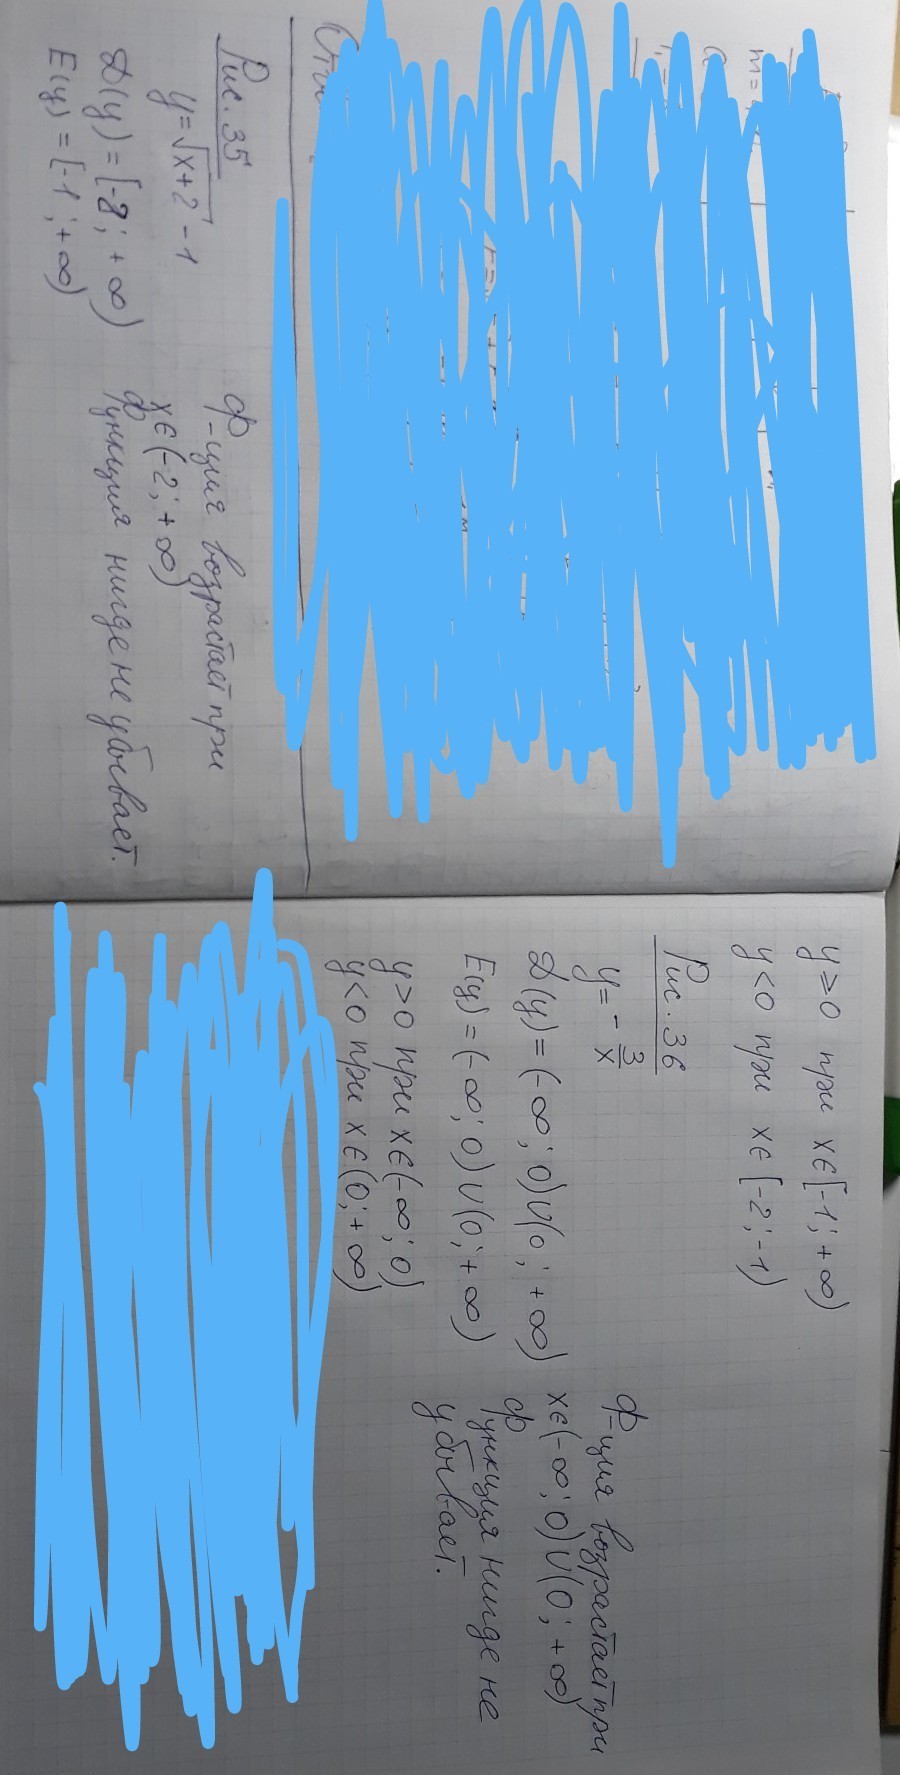 Рис. 35
y = √x+2 - 1
D(y) = [-2; +∞)
E(y) = [-1; +∞)
Ф-ция возрастает при
x∈(-2; +∞)
Функция нигде не убывает.
y ≥ 0 при x∈[-1; +∞)
y < 0 при x∈[-2; -1)
Рис. 36
y = - 3/x
D(y) = (-∞; 0)∪(0; +∞)
E(y) = (-∞; 0)∪(0; +∞)
y > 0 при x∈(-∞; 0)
y < 0 при x∈(0; +∞)
Ф-ция возрастает при
x∈(-∞; 0)∪(0; +∞)
Функция нигде не
убывает.